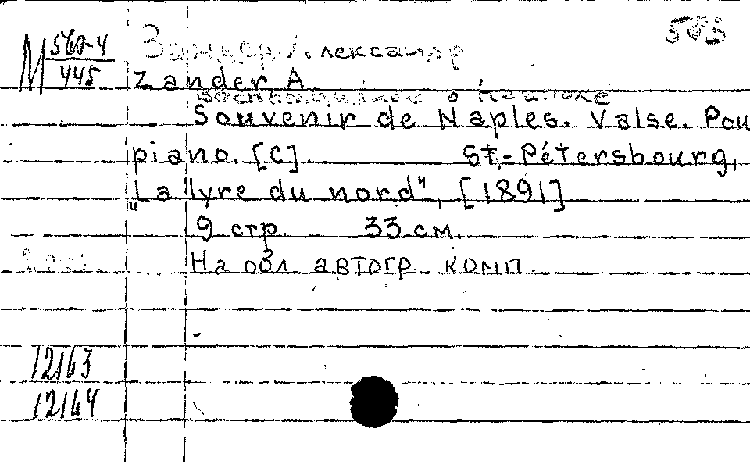 М 560-4/445
Зандер Александр
Zander A.
Воспоминание о Неаполе
Souvenir de Naples. Valse. Pou
piano. [C] St.-Pétersbourg,
"La lyre du nord", [1891]
9 стр. 33 см.
На обл. автогр. комп.
12163
12164